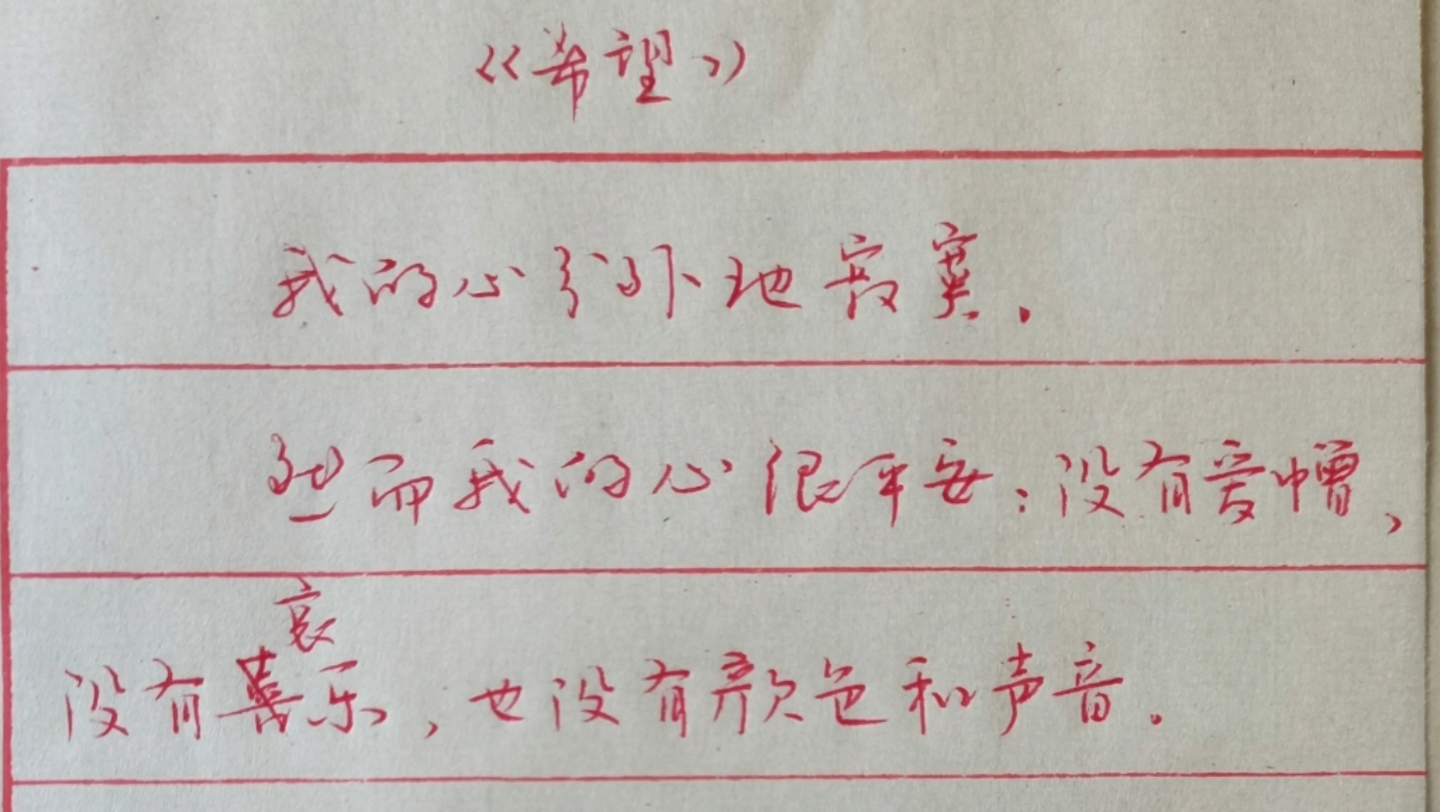 《希望》
我的心分外地寂寞.
然而我的心很平安:没有爱憎,
哀
没有喜乐,也没有颜色和声音.